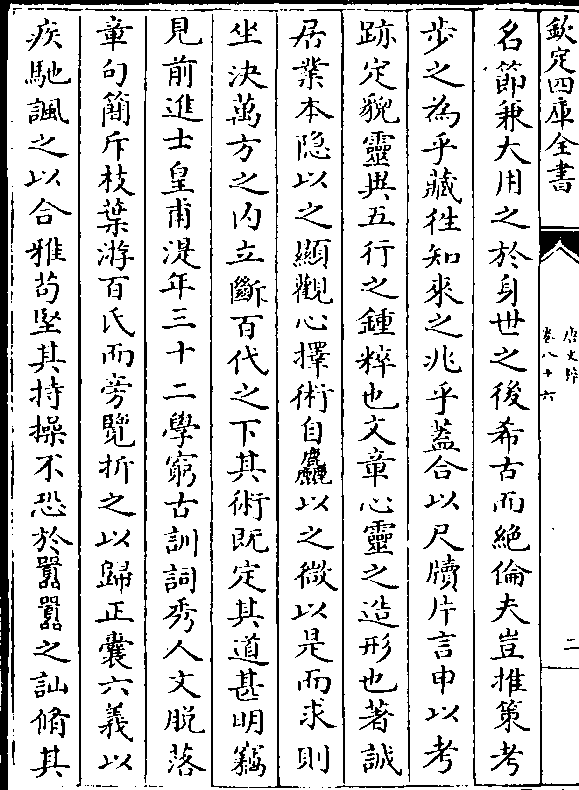 欽定四庫全書
唐文粹
卷八十六
二
名節兼大用之於身世之後希古而絶倫夫豈推策考
步之為乎藏徃知來之兆乎蓋合以尺牘片言申以考
跡定貌靈與五行之鍾粹也文章心靈之造形也著誠
居業本隐以之顯觀心擇術自麤以之微以是而求則
坐決萬方之内立斷百代之下其術既定其道甚明竊
見前進士皇甫湜年三十二學窮古訓詞秀人文脱落
章句簡斥枝葉游百氏而旁覽折之以歸正囊六義以
疾馳諷之以合雅茍堅其持操不恐於囂囂之訕脩其